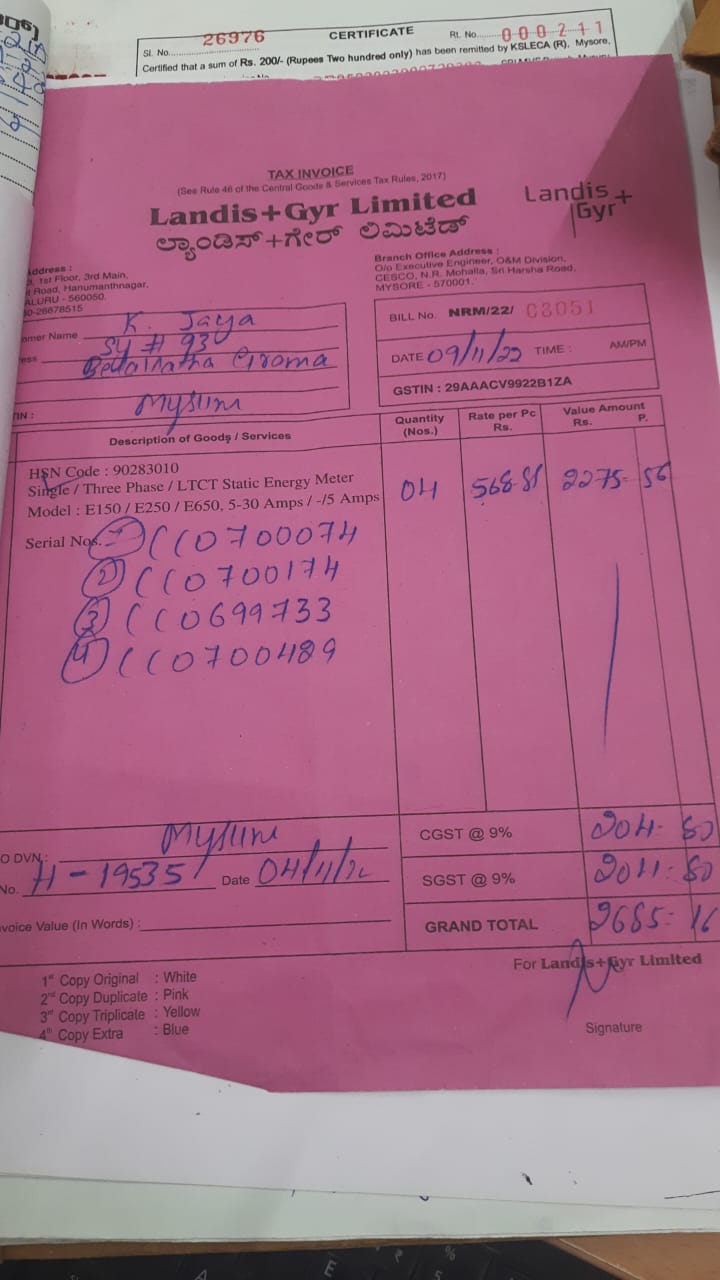 26976
CERTIFICATE
Rt. No. 000211
Sl. No.
Certified that a sum of Rs. 200/- (Rupees Two hundred only) has been remitted by KSLECA (R). Mysore,
TAX INVOICE
(See Rule 46 of the Central Goods & Services Tax Rules, 2017)
Landis+Gyr Limited
ಲ್ಯಾಂಡಿಸ್+ಗೇರ್ ಲಿಮಿಟೆಡ್
Landis+
Gyr
ddress :
1st Floor, 3rd Main,
Road, Hanumanthnagar,
ALURU - 560050.
0-26678515
Branch Office Address :
O/o Executive Engineer, O&M Division,
CESCO, N.R. Mohalla, Sri Harsha Road,
MYSORE - 570001.
omer Name K. Jaya
ess Sy # 93
BILL No. NRM/22/ 03051
DATE 09/11/22 TIME : AM/PM
GSTIN : 29AAACV9922B1ZA
TIN :
Description of Goods / Services
Quantity (Nos.)
Rate per Pc Rs.
Value Amount Rs. P.
HSN Code : 90283010
Single / Three Phase / LTCT Static Energy Meter
Model : E150 / E250 / E650, 5-30 Amps / -/5 Amps
04 568.81 2275-56
Serial Nos. 1 CC0700074
2 CC0700174
3 CC0699733
4 CC0700489
CGST @ 9% 204-80
SGST @ 9% 204-80
GRAND TOTAL 2685-16
O DVN :
No. H-19535 Date 04/11/22
voice Value (In Words) :
For Landis+Gyr Limited
Signature
1st Copy Original : White
2nd Copy Duplicate : Pink
3rd Copy Triplicate : Yellow
4th Copy Extra : Blue